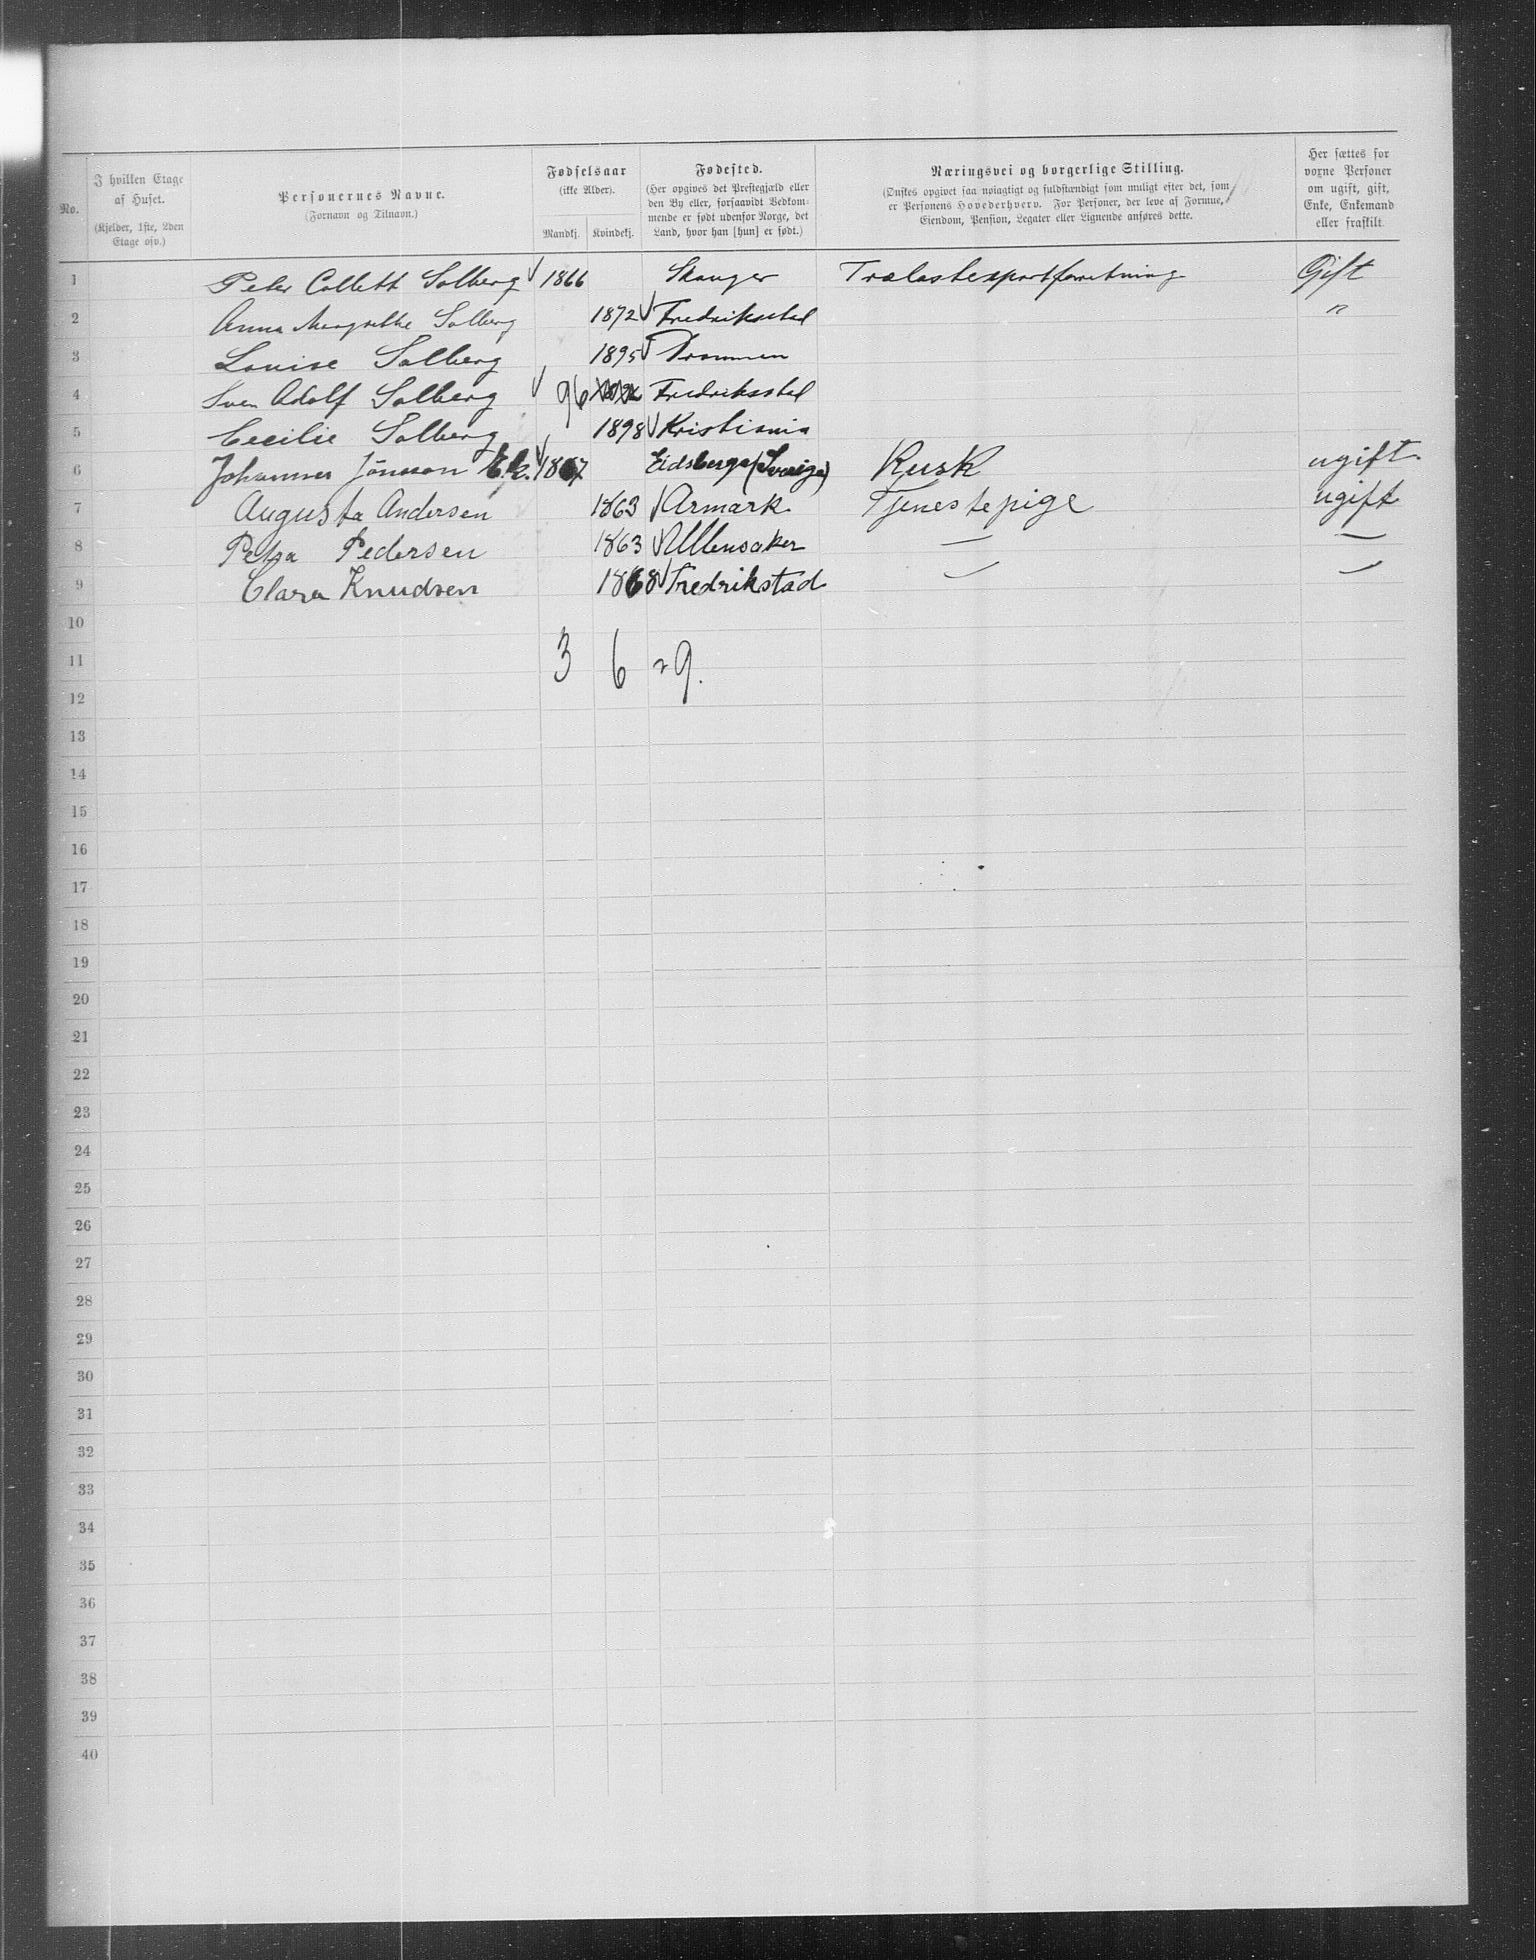 No.
I hvilken Etage af Huset.
(Kjelder, 1ste, 2den Etage osv.)
Personernes Navne.
(Fornavn og Tilnavn.)
Fødselsaar
(ikke Alder).
Mandkj. Kvindekj.
Fødested.
(Her opgives det Prestegjæld eller
den By eller, forsaavidt Vedkom-
mende er født udenfor Norge, det
Land, hvor han [hun] er født.)
Næringsvei og borgerlige Stilling.
(Ønskes opgivet saa nøiagtigt og fuldstændigt som muligt efter det, som
er Personens Hovederhverv. For Personer, der leve af Formue,
Eiendom, Pension, Legater eller Lignende anføres dette.
Her sættes for
vorne Personer
om ugift, gift,
Enke, Enkemand
eller fraskilt.
1 Peter Collett Solberg 1866 Skauger Trælastexportforretning Gift
2 Anna Margrethe Solberg 1872 Fredriksstad "
3 Louise Solberg 1895 Drammen
4 Sven Adolf Solberg 96 Fredriksstad
5 Cecilie Solberg 1898 Kristiania
6 Johannes Jönsson Ek. 1867 Eidsberga (Sverige) Kusk ugift.
7 Augusta Andersen 1863 Armark Tjenestepige ugift
8 Petra Pedersen 1863 Ullensaker — —
9 Clara Knudsen 1868 Fredrikstad — —
10
11 3 6 = 9.
12
13
14
15
16
17
18
19
20
21
22
23
24
25
26
27
28
29
30
31
32
33
34
35
36
37
38
39
40